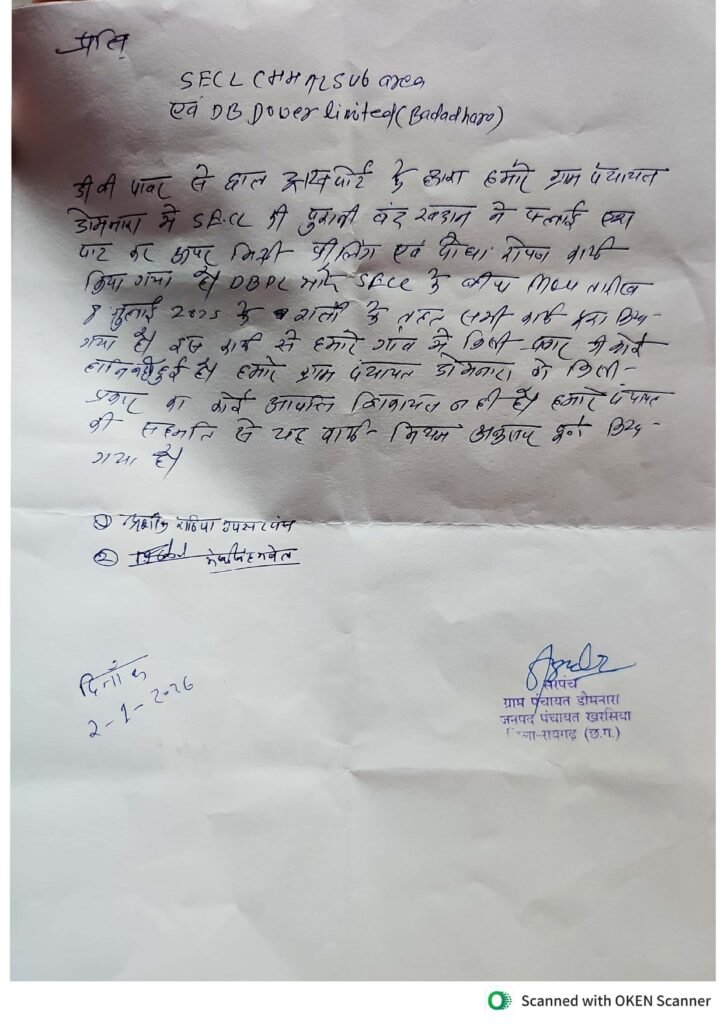 प्रति
SECL CHHAL SUB area
एवं DB Power limited (Badadhara)
डी वी पावर से छाल ट्रांसपोर्ट के द्वारा हमारे ग्राम पंचायत
डोमनारा मे SECL की पुरानी बंद खदान मे फ्लाई एश
पाट कर ऊपर मिट्टी फीलिंग एवं पौधा रोपण कार्य
किया गया है। DBPL और SECL के बीच MOU तारीख
8 जुलाई 2025 के शर्तो के तहत सभी कार्य पुरा किया
गया है। इस कार्य से हमारे गांव मे किसी प्रकार की कोई
हानि नही हुई है। हमारे ग्राम पंचायत डोमनारा को किसी
प्रकार का कोई आपत्ति शिकायत नही है। हमारे पंचायत
की सहमति से यह कार्य नियम अनुसार किया
गया है।
① राठिया उपसरपंच
②
दिनाँक
2-1-2026
सरपंच
ग्राम पंचायत डोमनारा
जनपद पंचायत खरसिया
जिला-रायगढ़ (छ.ग.)
Scanned with OKEN Scanner